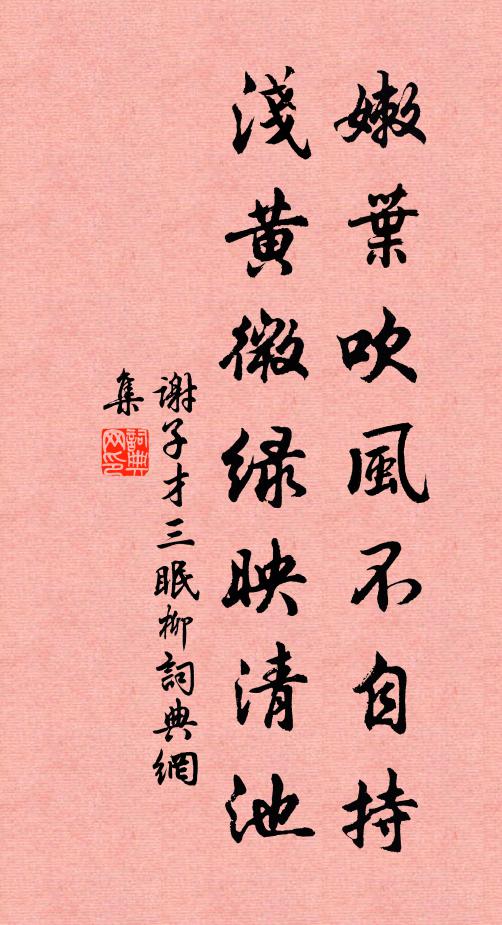 嫩葉吹風不自持
淺黃微綠映清池
謝子才三眠柳詞典網
集
詞典
网印